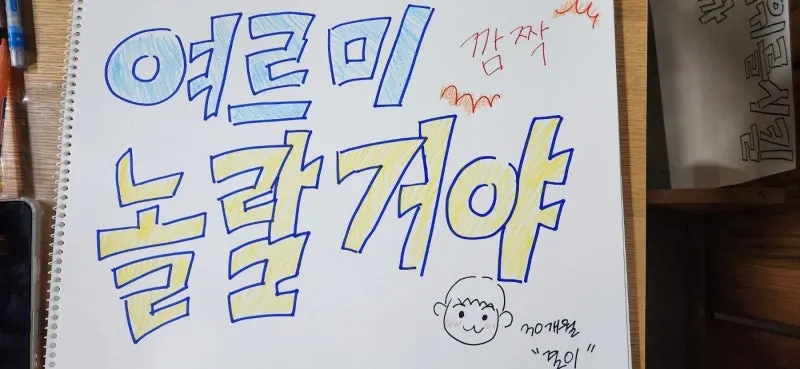 여르미 깜짝
놀랄거야
30개월